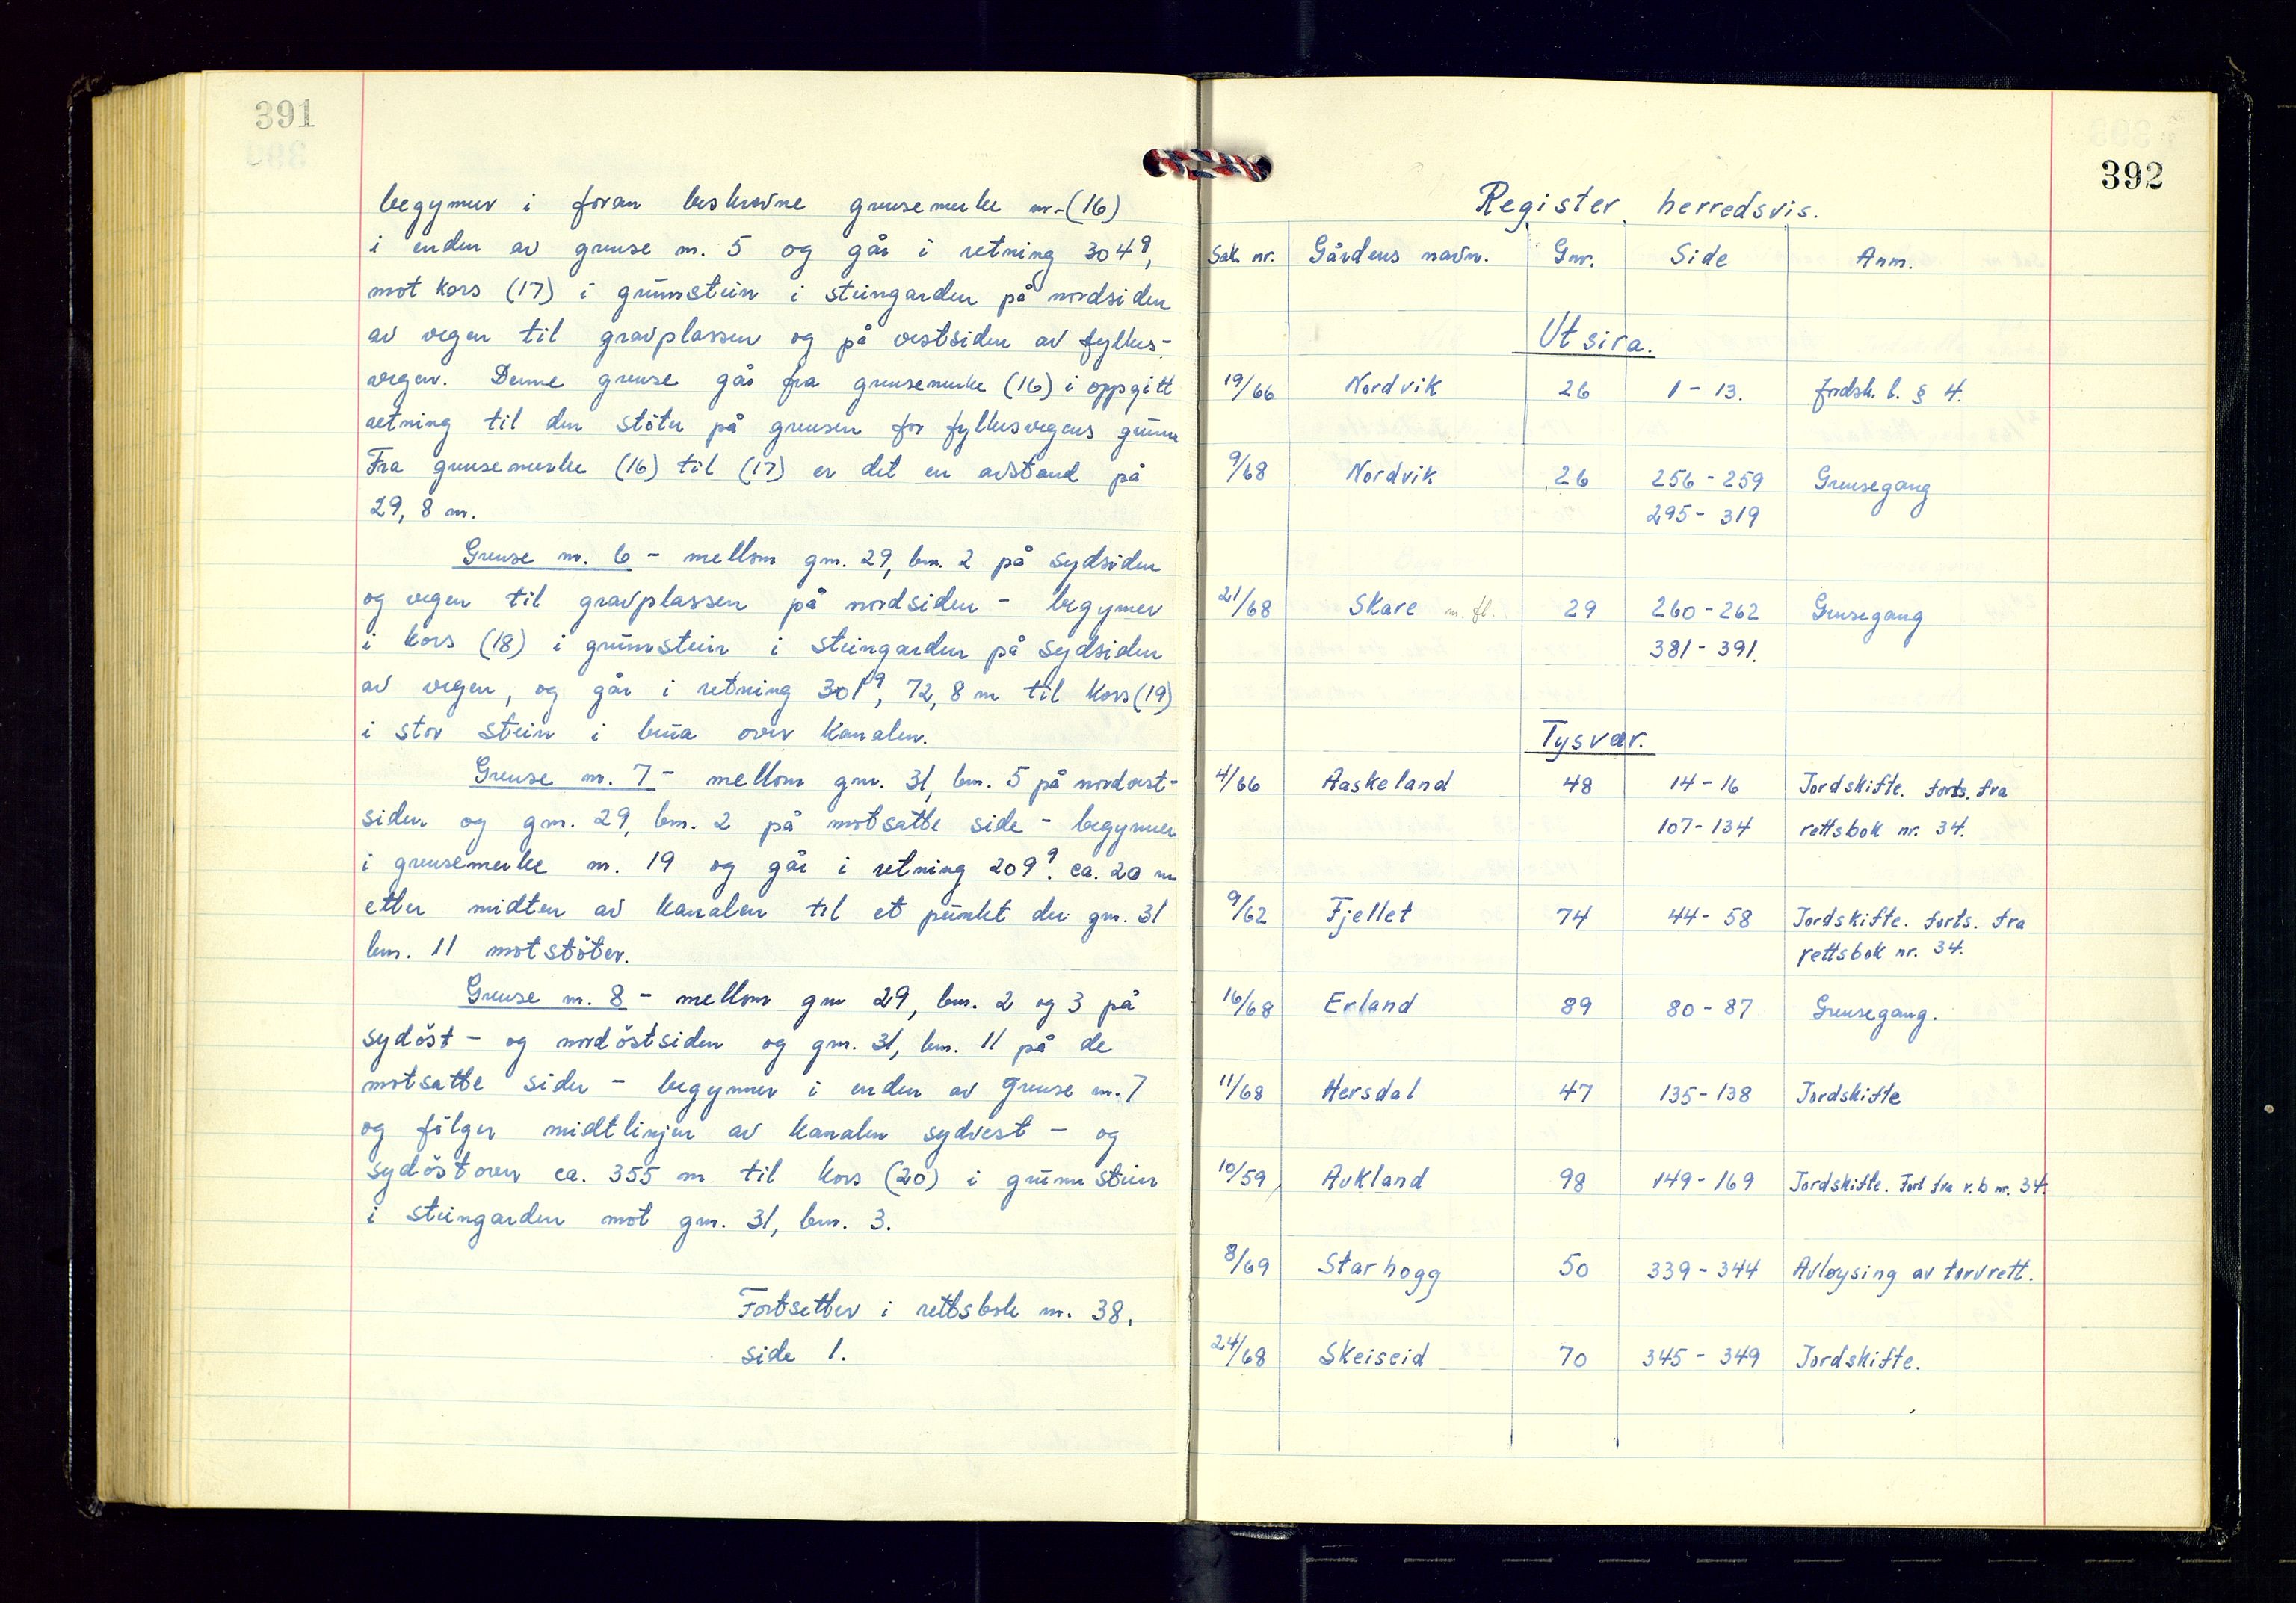 391
begynner i foran beskrevne grensemerke nr. (16)
i enden av grense nr. 5 og går i retning 304g,
mot kors (17) i grunnstein i steingarden på nordsiden
av vegen til gravplassen og på vestsiden av fylkes-
vegen. Denne grense går fra grensemerke (16) i oppgitt
retning til den stöter på grensen for fylkesvegens grunn
Fra grensemerke (16) til (17) er det en avstand på
29,8 m.
Grense nr. 6 - mellom gnr. 29, bnr. 2 på sydsiden
og vegen til gravplassen på nordsiden - begynner
i kors (18) i grunnstein i steingarden på sydsiden
av vegen, og går i retning 301g, 72,8 m til kors (19)
i stor stein i brua over kanalen.
Grense nr. 7 - mellom gnr. 31, bnr. 5 på nordvest-
siden og gnr. 29, bnr. 2 på motsatte side - begynner
i grensemerke nr. 19 og går i retning 209g. ca. 20 m
etter midten av kanalen til et punkt der gnr. 31
bnr. 11 motstöter.
Grense nr. 8 - mellom gnr. 29, bnr. 2 og 3 på
sydöst - og nordöstsiden og gnr. 31, bnr. 11 på de
motsatte sider - begynner i enden av grense nr. 7
og fölger midtlinjen av kanalen sydvest - og
sydöstover ca. 355 m til kors (20) i grunnstein
i steingarden mot gnr. 31, bnr. 3.
Fortsetter i rettsbok nr. 38,
side 1.
392
Register herredsvis.
Sak nr. Gårdens navn. Gnr. Side Anm.
Utsira.
19/66 Nordvik 26 1 - 13. Jordsk. l. § 4.
9/68 Nordvik 26 256 - 259 Grensegang
295 - 319
21/68 Skare m. fl. 29 260 - 262 Grensegang
381 - 391.
Tysvær.
4/66 Aaskeland 48 14 - 16 Jordskifte. forts. fra
107 - 134 rettsbok nr. 34.
9/62 Fjellet 74 44 - 58 Jordskifte. forts. fra
rettsbok nr. 34.
16/68 Erland 89 80 - 87 Grensegang.
11/68 Hersdal 47 135 - 138 Jordskifte
10/59 Aukland 98 149 - 169 Jordskifte. Fort fra r.b nr. 34.
8/69 Starhogg 50 339 - 344 Avløysing av torvrett.
24/68 Skeiseid 70 345 - 349 Jordskifte.